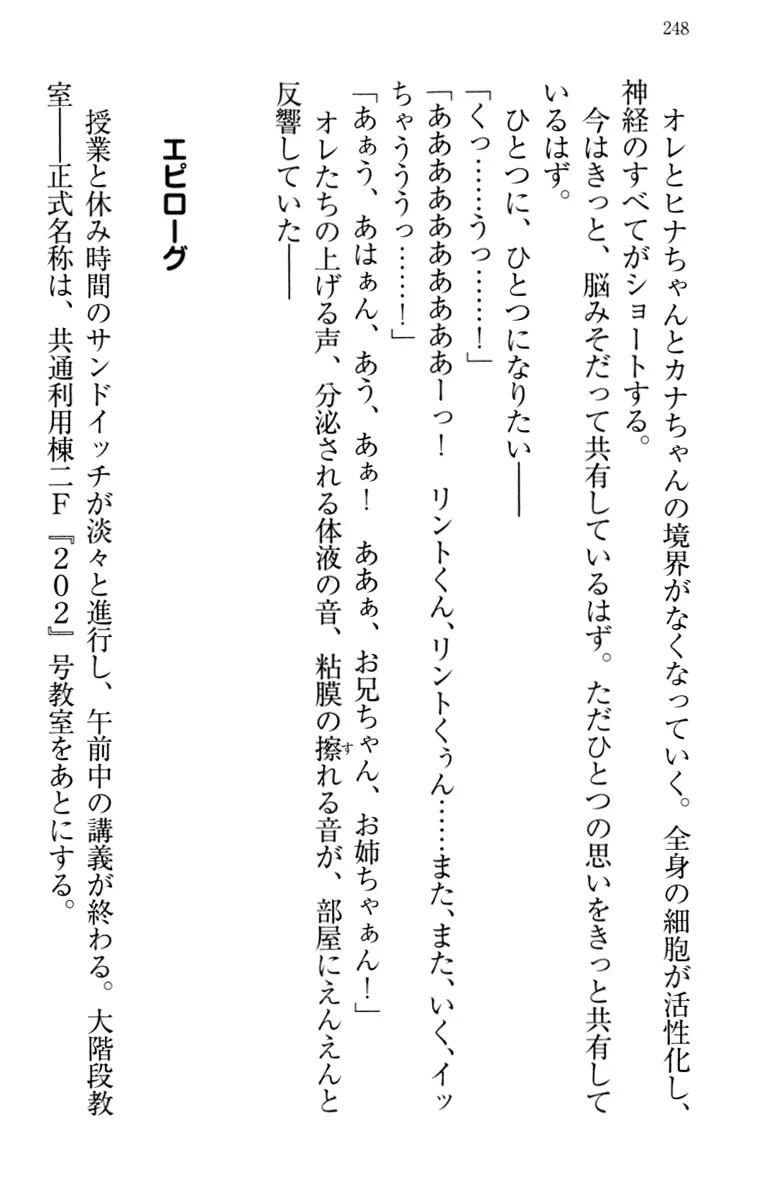 248
オレとヒナちゃんとカナちゃんの境界がなくなっていく。全身の細胞が活性化し、
神経のすべてがショートする。
今はきっと、脳みそだって共有しているはず。ただひとつの思いをきっと共有して
いるはず。
ひとつに、ひとつになりたい――
「くっ……うっ……！」
「ああああああああああーっ！　リントくん、リントくぅん……また、また、いく、イッ
ちゃうううっ……！」
「あぁう、あはぁん、あう、あぁ！　ああぁ、お兄ちゃん、お姉ちゃぁん！」
オレたちの上げる声、分泌される体液の音、粘膜の擦れる音が、部屋にえんえんと
反響していた――
エピローグ
授業と休み時間のサンドイッチが淡々と進行し、午前中の講義が終わる。大階段教
室――正式名称は、共通利用棟二Ｆ『２０２』号教室をあとにする。